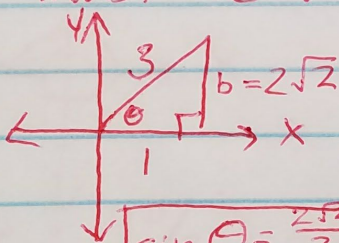 y
3
b = 2√2
θ
x
1
sin θ = 2√2